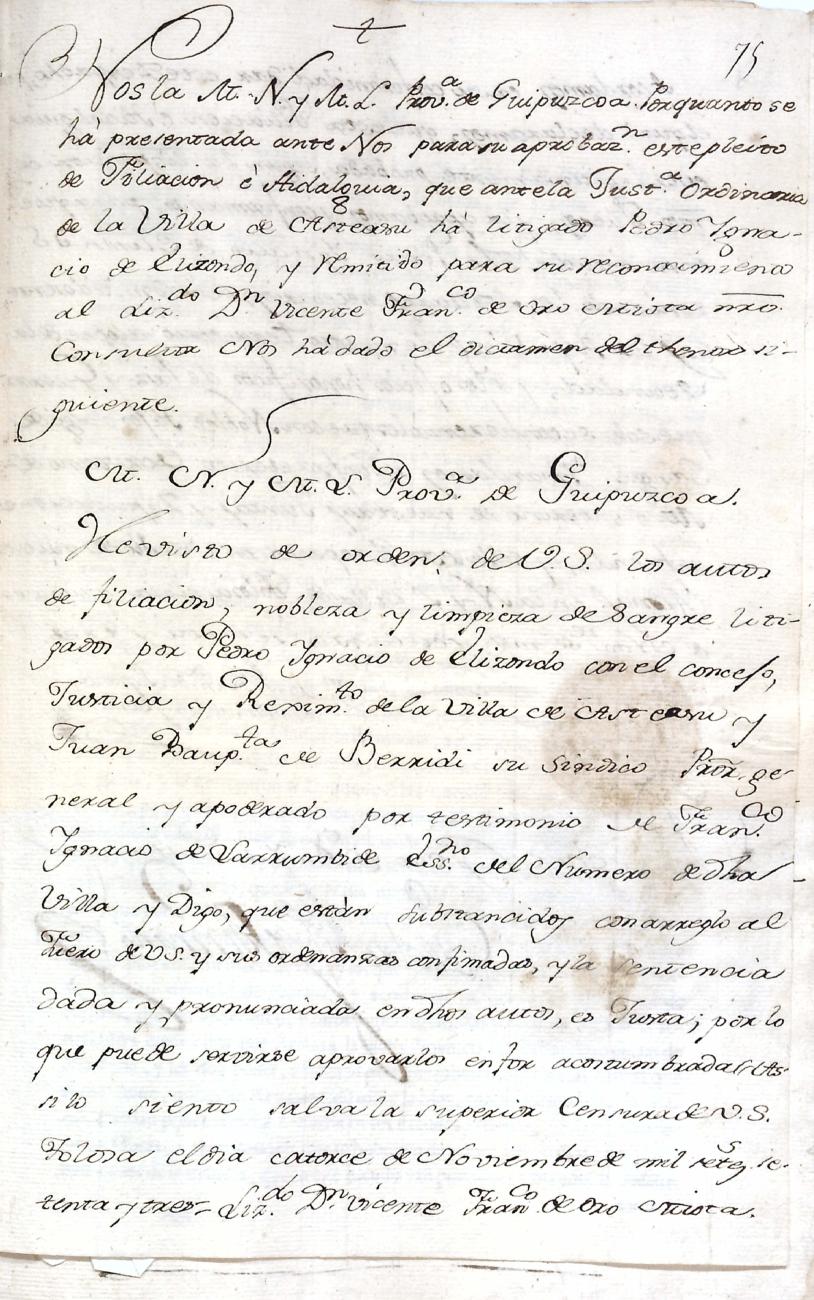 75
Nos la M. N. y M. L. Prov.ª de Guipuzcoa. Porquanto se
há presentada ante Nos para su aprobaz.n este pleito
de Filiacion è Hidalguia, que ante la Just.ª Ordinaria
de la Villa de Asteasu há litigado Pedro Ygna-
cio de Elizondo, y remitido para su reconocimiento
al Liz.do D.n Vicente Fran.co de Oro Miota nro.
Consultor Nos há dado el dictamen del thenor si-
guiente.
M. N. y M. L. Prov.ª de Guipuzcoa.
He visto de orden de V.S. los autos
de filiacion, nobleza y limpieza de Sangre liti-
gados por Pedro Ygnacio de Elizondo con el concejo,
Justicia y Regim.to de la Villa de Asteasu y
Juan Baup.ta de Berridi su Sindico Pror. ge-
neral y apoderado por testimonio de Fran.co
Ygnacio de Larrumbide Ess.no del Numero de dha
Villa y Digo, que están substanciados con arreglo al
Fuero de V.S. y sus ordenanzas confirmadas, y la sentencia
dada y pronunciada en dhos autos, es Justa; por lo
que puede servirse aprovarlos en for acostumbrada. As-
si lo siento salva la superior Censura de V.S.
Tolosa el dia catorce de Noviembre de mil setez.s se-
tenta y tres = Liz.do D.n Vicente Fran.co de Oro Miota.